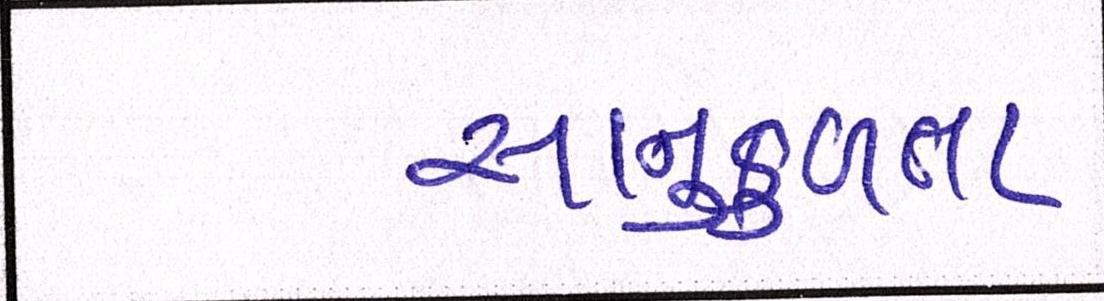 સાનુકુળતા